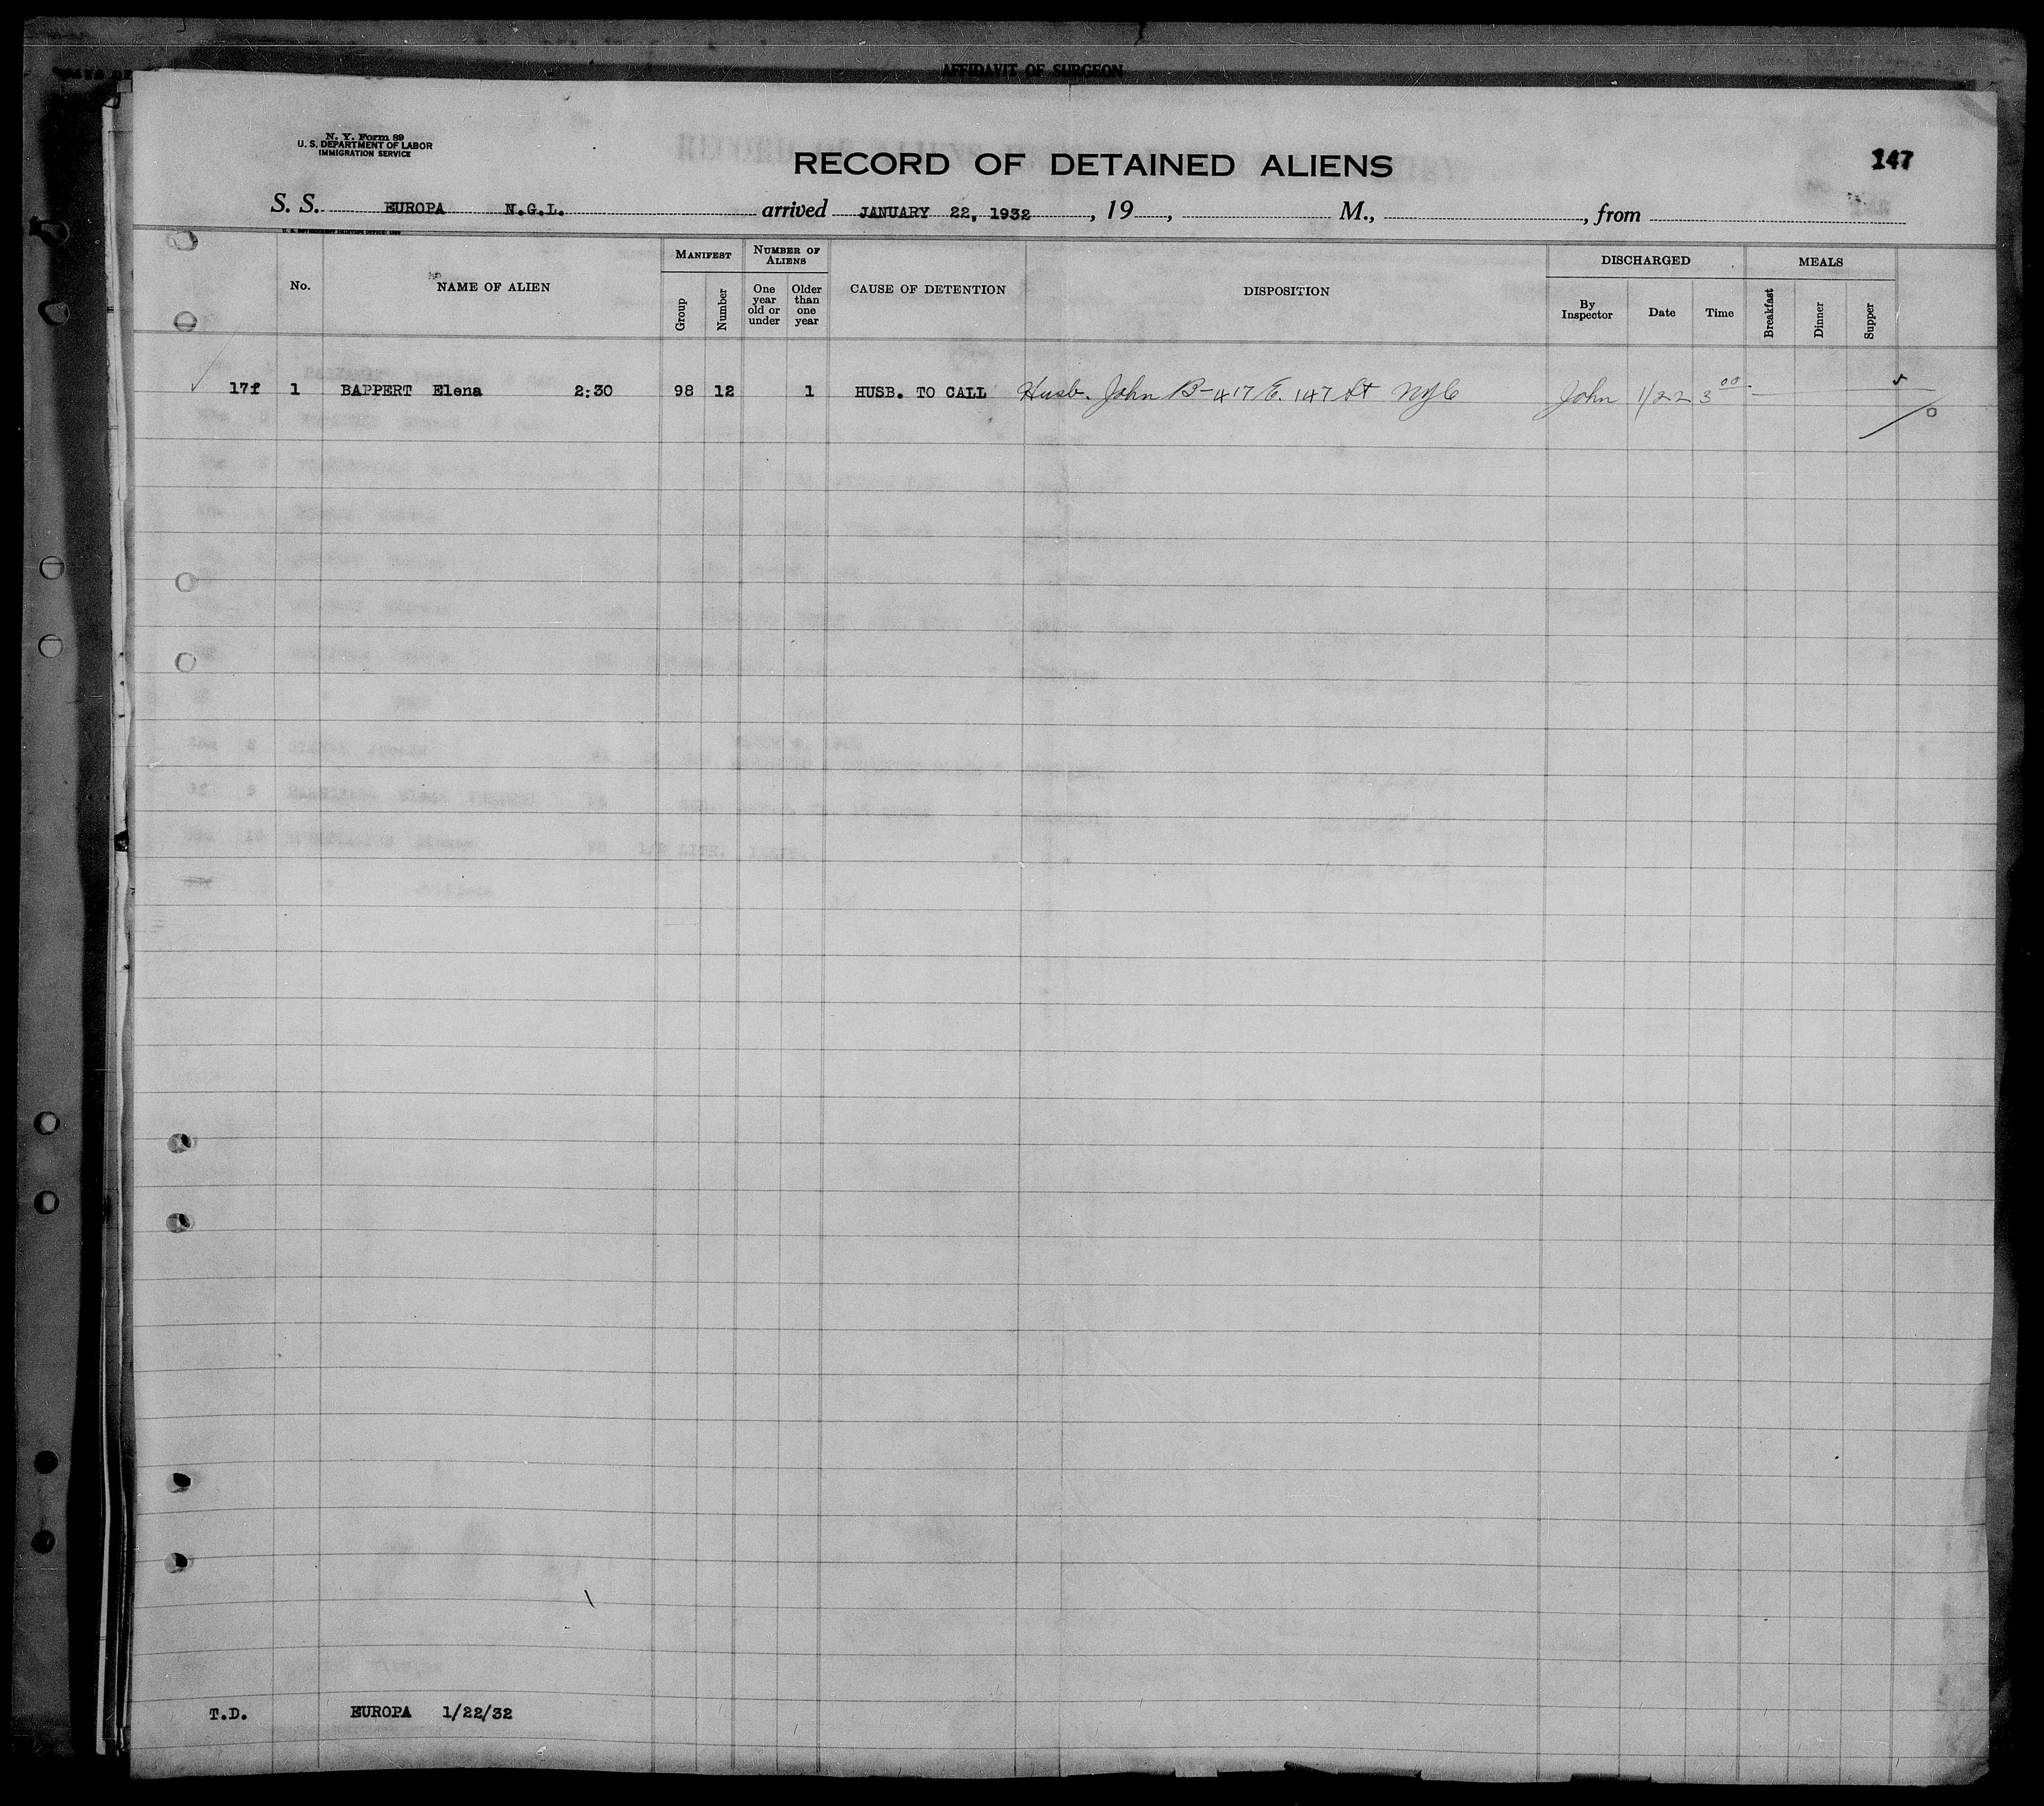 AFFIDAVIT OF SURGEON
N. Y. Form 89
U. S. DEPARTMENT OF LABOR
IMMIGRATION SERVICE
RECORD OF DETAINED ALIENS
147
S. S. EUROPA N.G.L. arrived JANUARY 22, 1932, 19, M., , from
No. NAME OF ALIEN MANIFEST Group Number NUMBER OF ALIENS One year old or under Older than one year CAUSE OF DETENTION DISPOSITION DISCHARGED By Inspector Date Time MEALS Breakfast Dinner Supper
17f 1 BAPPERT Elena 2:30 98 12 1 HUSB. TO CALL Husb. John B- 417 E. 147 St NYC John 1/22 3 00
T.D. EUROPA 1/22/32